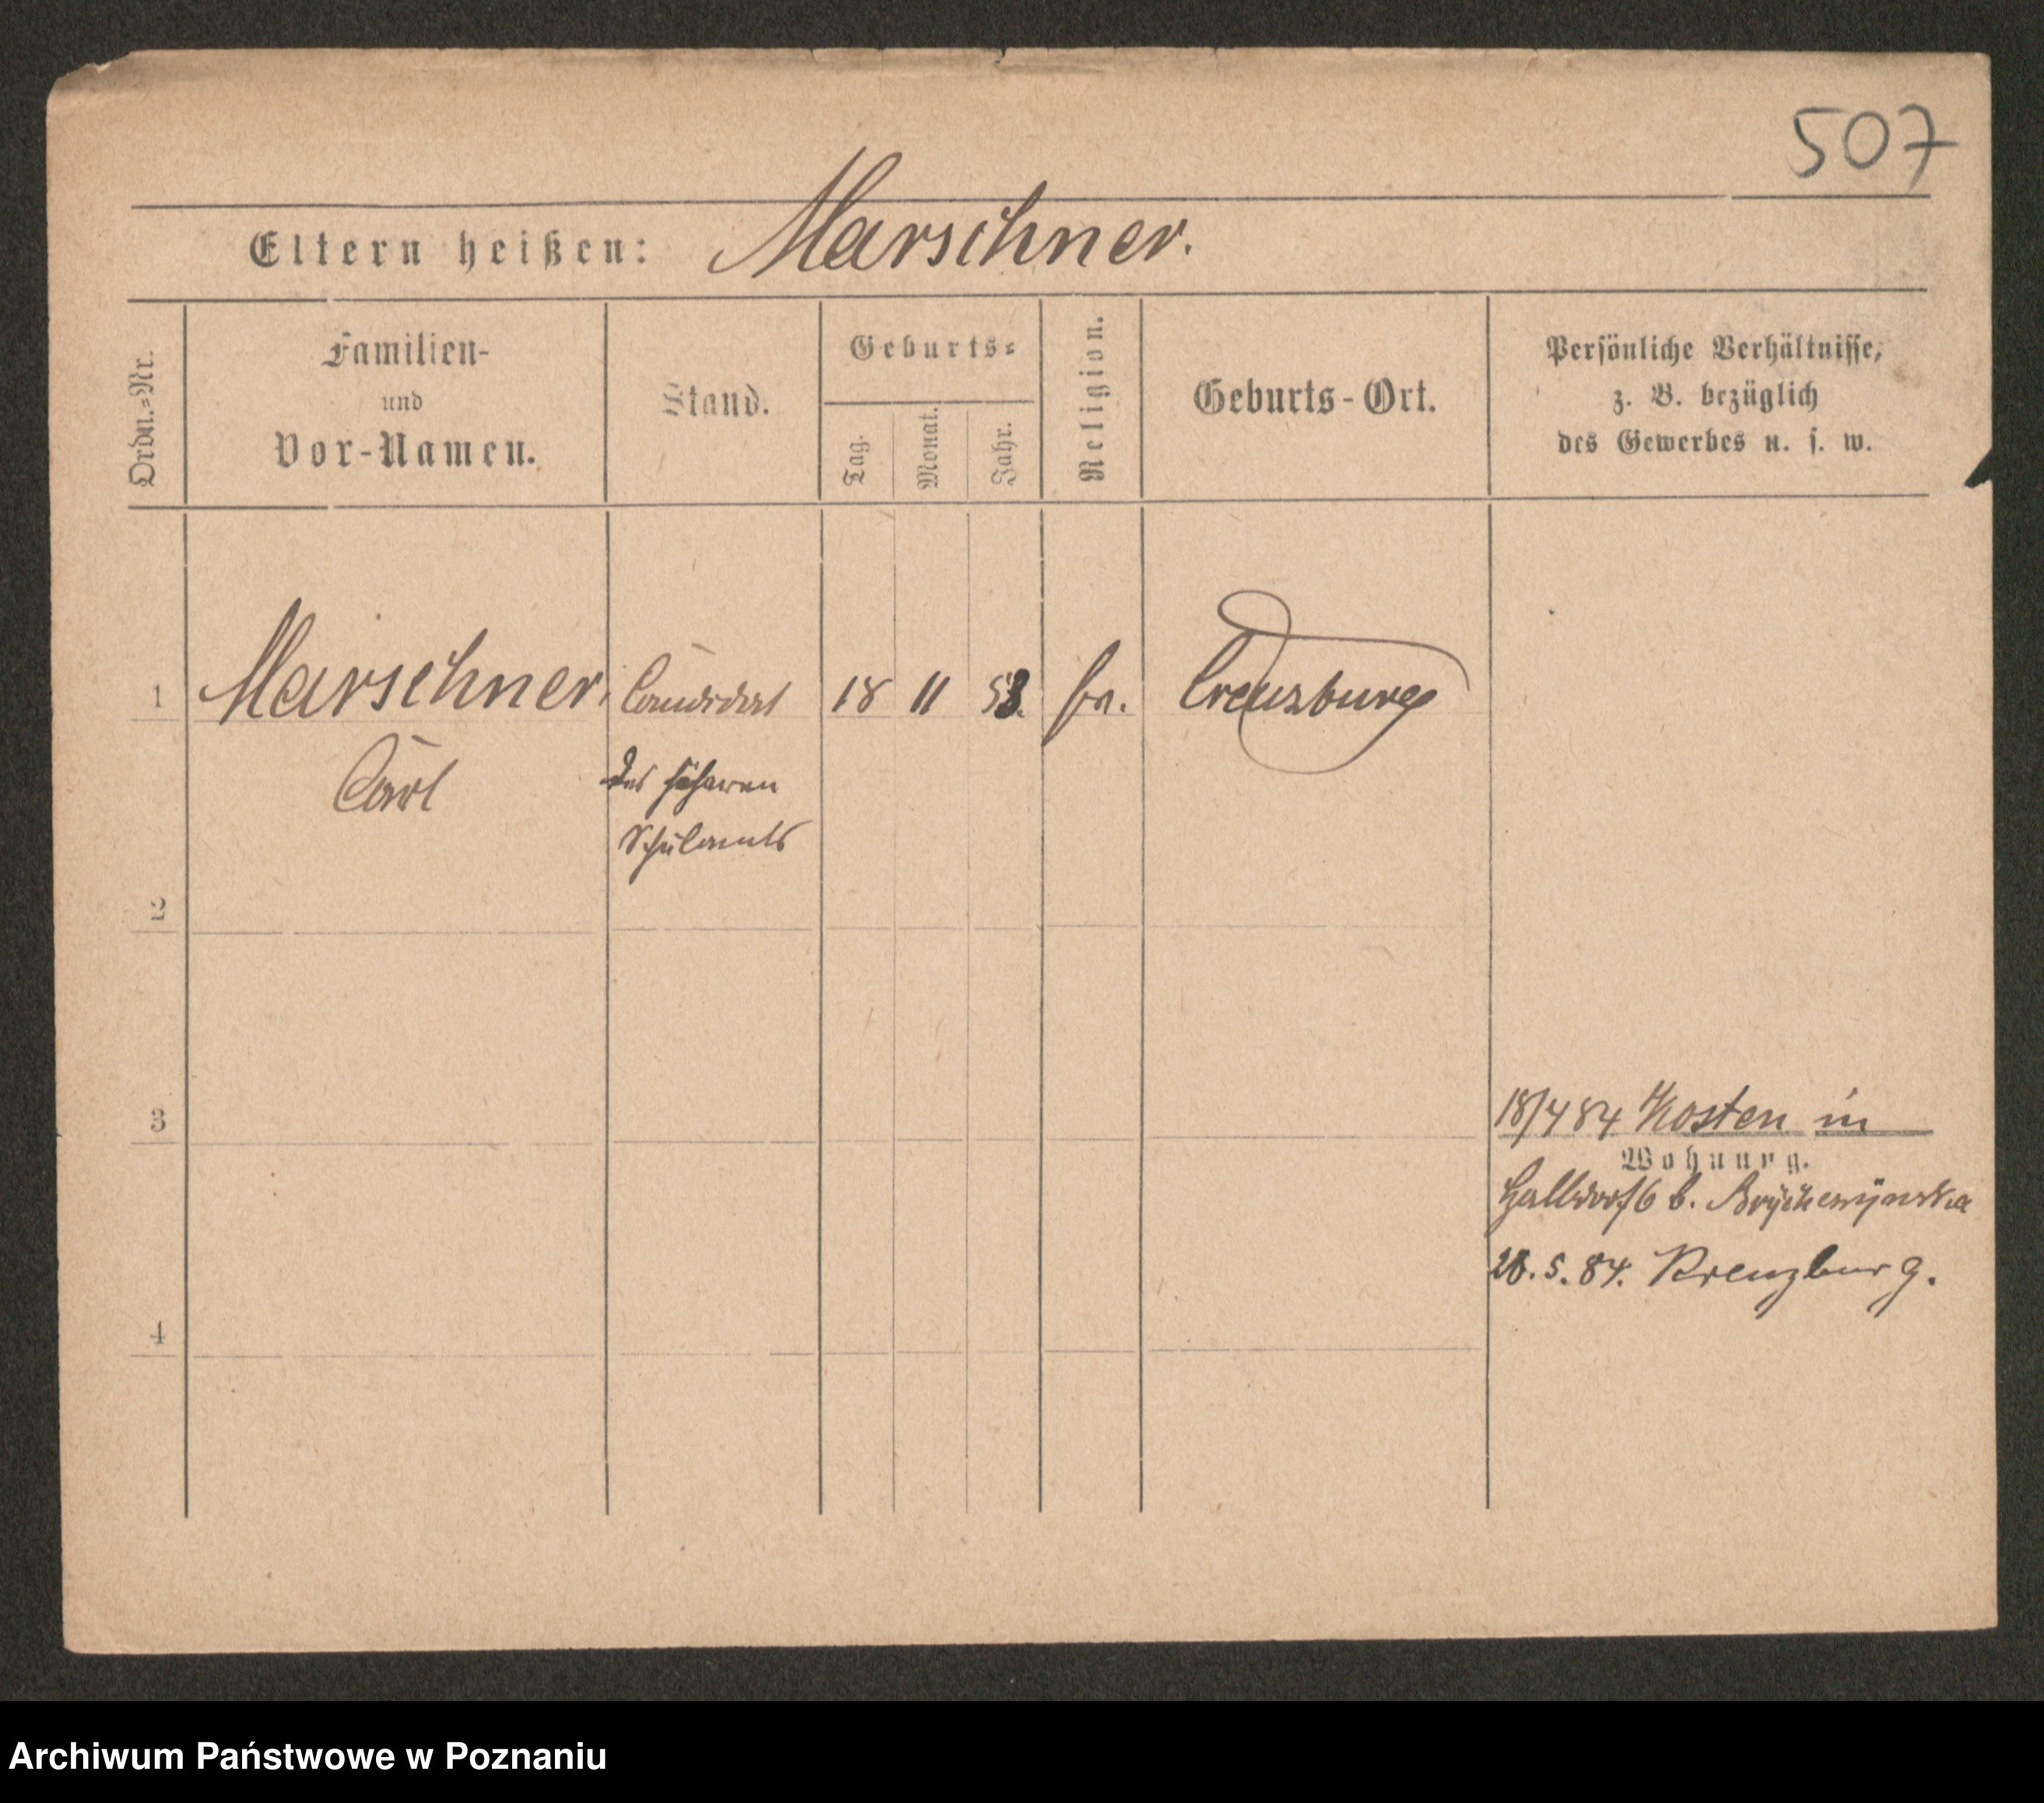 507
Eltern heißen: Marschner.
Ordn.=Nr.
Familien-
und
Vor-Namen.
Stand.
Geburts=
Tag.
Monat.
Jahr.
Religion.
Geburts-Ort.
Persönliche Verhältnisse,
z. B. bezüglich
des Gewerbes u. s. w.
1 Marschner, Candidat 18 11 53. Creuzburg
Carl des höheren
Schulamts
2
3
18/4 84 Kosten in
Wohnung.
Halbdorf 6 b.
28. 5. 84. Kreuzburg.
4
Archiwum Państwowe w Poznaniu